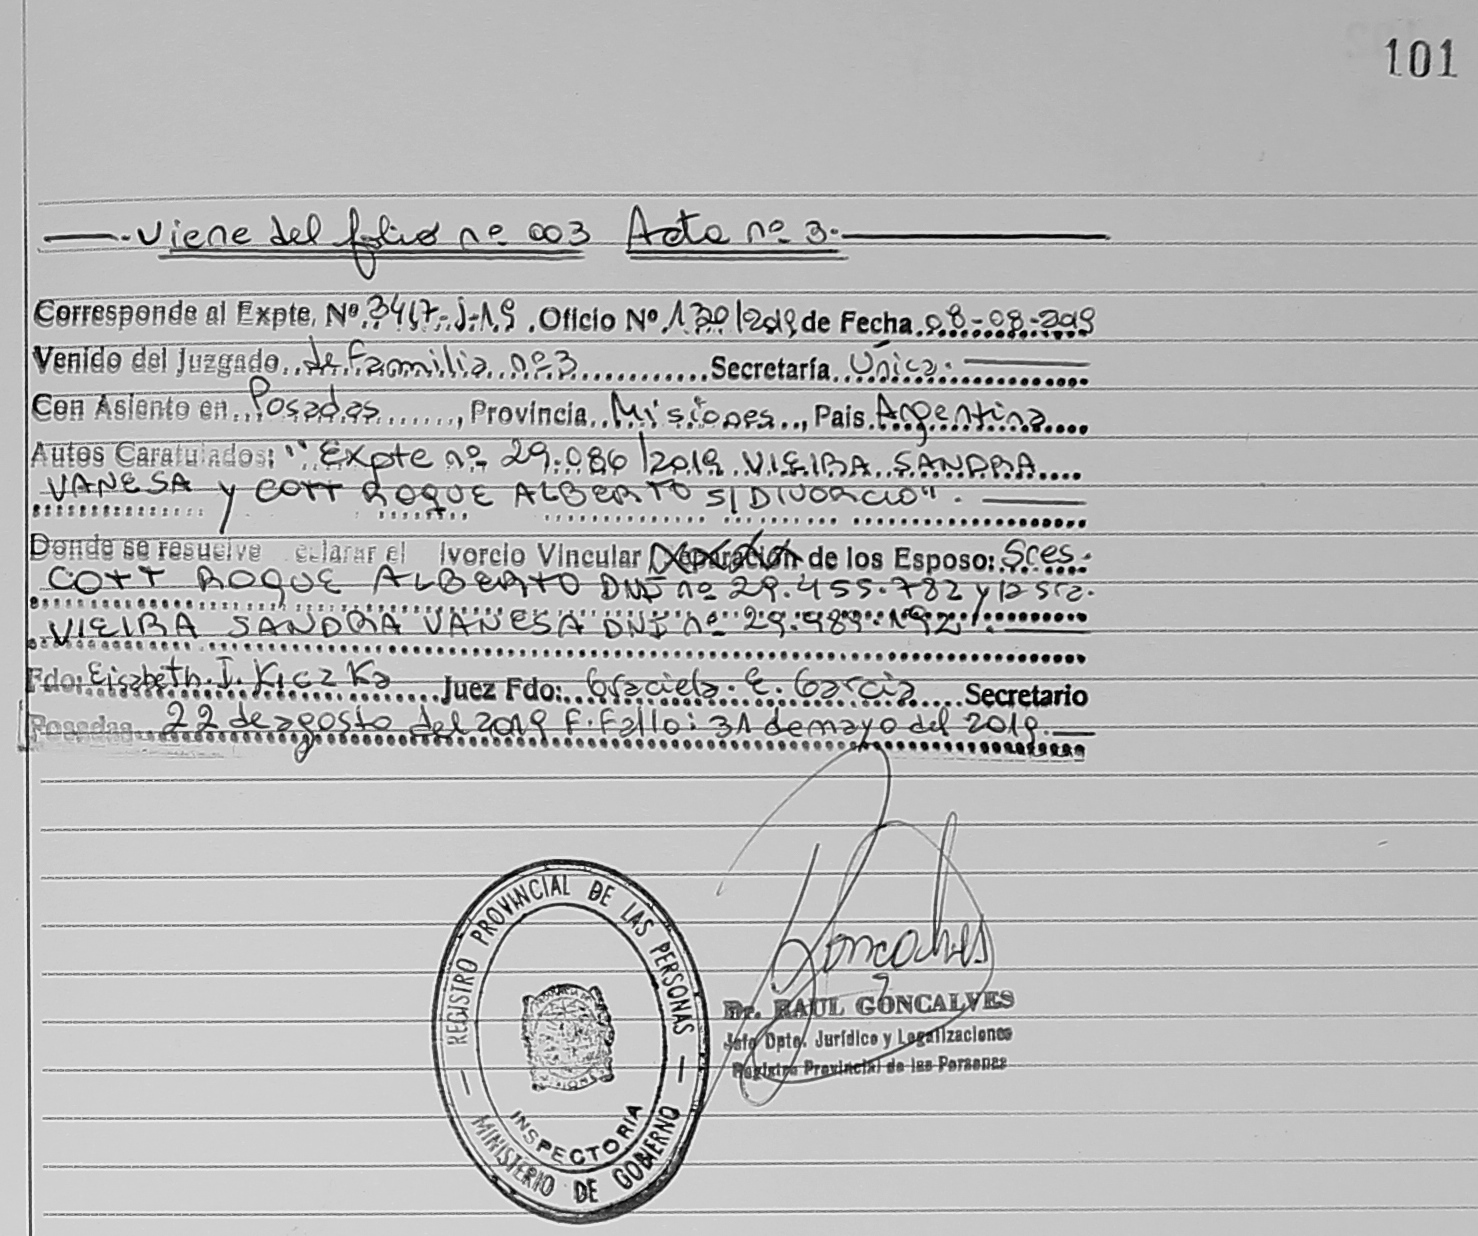 101
Viene del folio nº 003 Acta nº 3.
Corresponde al Expte. Nº 3467-J-19. Oficio Nº 1320/2019 de Fecha 08-08-2019
Venido del Juzgado de familia nº 3 Secretaría Única.
Con Asiento en Posadas, Provincia Misiones, Pais Argentina
Autos Caratulados: "Expte nº 29.086/2019 VIEIRA SANDRA
VANESA y COTT ROQUE ALBERTO S/DIVORCIO".
Donde se resuelve eclarar el ivorcio Vincular (Separación de los Esposo: Sres.
COTT ROQUE ALBERTO DNI nº 29.455.782 y la sra.
VIEIRA SANDRA VANESA DNI nº 29.989.192.
Fdo: Elisabeth. I. Kiczka Juez Fdo: Graciela. E. Garcia Secretario
Posadas 22 de agosto del 2019 F. Fallo: 31 de mayo del 2019.
Gonçalves
Dr. RAUL GONCALVES
Jefe Dpto. Jurídico y Legalizaciones
Registro Provincial de las Personas
REGISTRO PROVINCIAL DE LAS PERSONAS
INSPECTORIA
MINISTERIO DE GOBIERNO